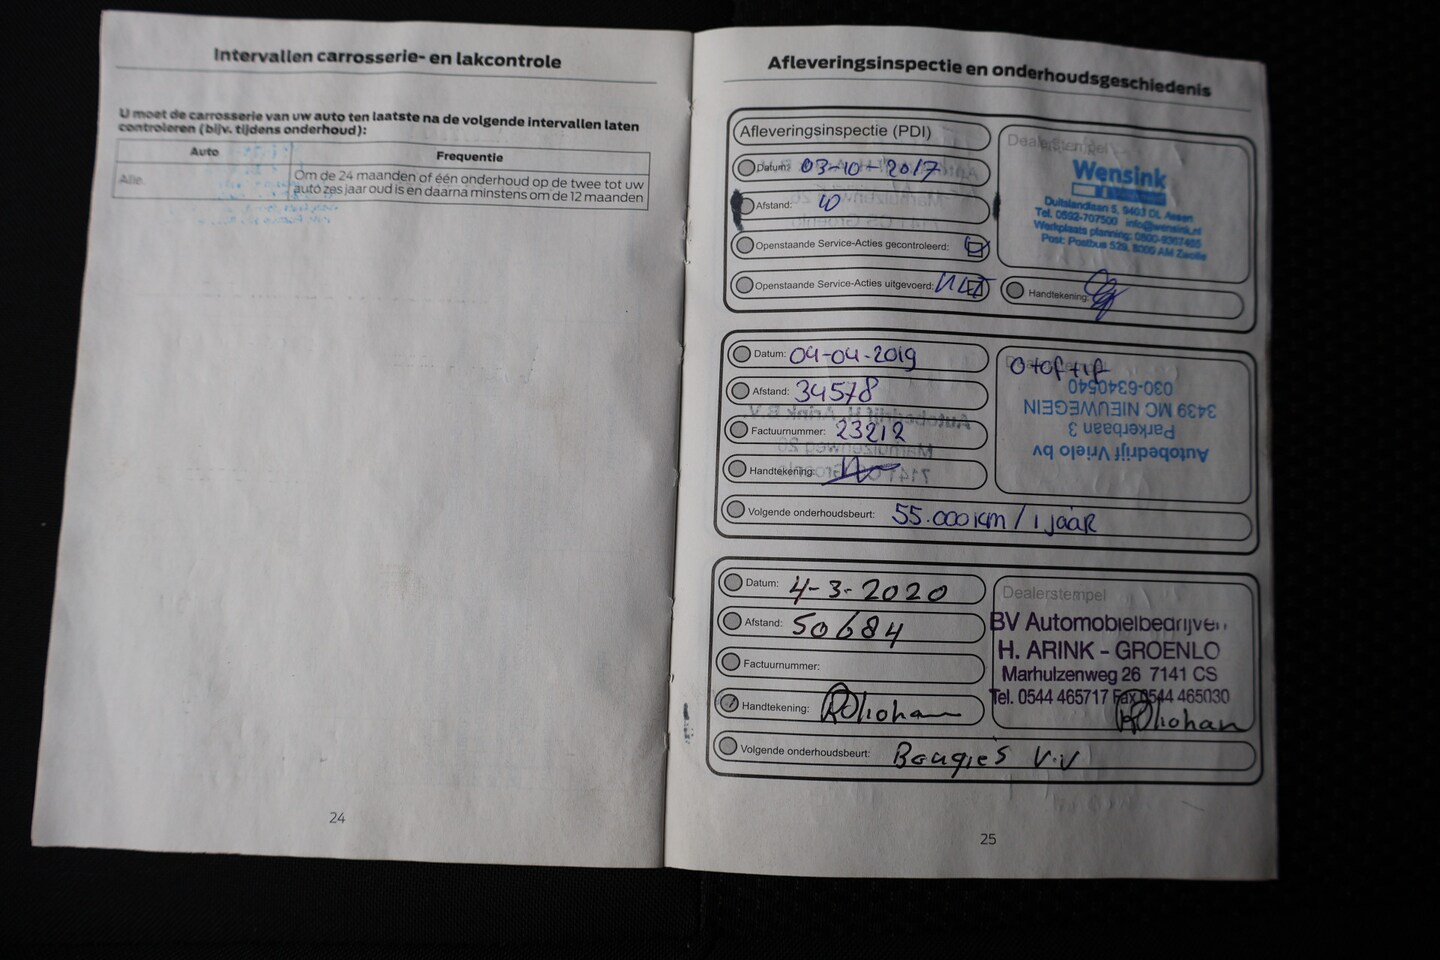 Intervallen carrosserie- en lakcontrole
U moet de carrosserie van uw auto ten laatste na de volgende intervallen laten
controleren (bijv. tijdens onderhoud):
Auto Frequentie
Alle. Om de 24 maanden of één onderhoud op de twee tot uw
auto zes jaar oud is en daarna minstens om de 12 maanden
24
Afleveringsinspectie en onderhoudsgeschiedenis
Afleveringsinspectie (PDI)
Datum: 03-10-2017
Afstand: 10
Openstaande Service-Acties gecontroleerd:
Openstaande Service-Acties uitgevoerd:
Dealerstempel
Wensink
Duitslandlaan 5, 9403 DL Assen
Tel. 0592-707500 info@wensink.nl
Werkplaats planning: 0800-9367465
Post: Postbus 529, 8000 AM Zwolle
Handtekening:
Datum: 04-04-2019
Afstand: 34578
Factuurnummer: 23212
Handtekening:
Volgende onderhoudsbeurt: 55.000 km / 1 jaar
Autobedrijf Vrielo bv
Parkerbaan 3
3439 MC NIEUWEGEIN
030-6340540
Datum: 4-3-2020
Afstand: 50684
Factuurnummer:
Handtekening:
Volgende onderhoudsbeurt: Bougies V.V
Dealerstempel
BV Automobielbedrijven
H. ARINK - GROENLO
Marhulzenweg 26 7141 CS
Tel. 0544 465717 Fax 0544 465030
25